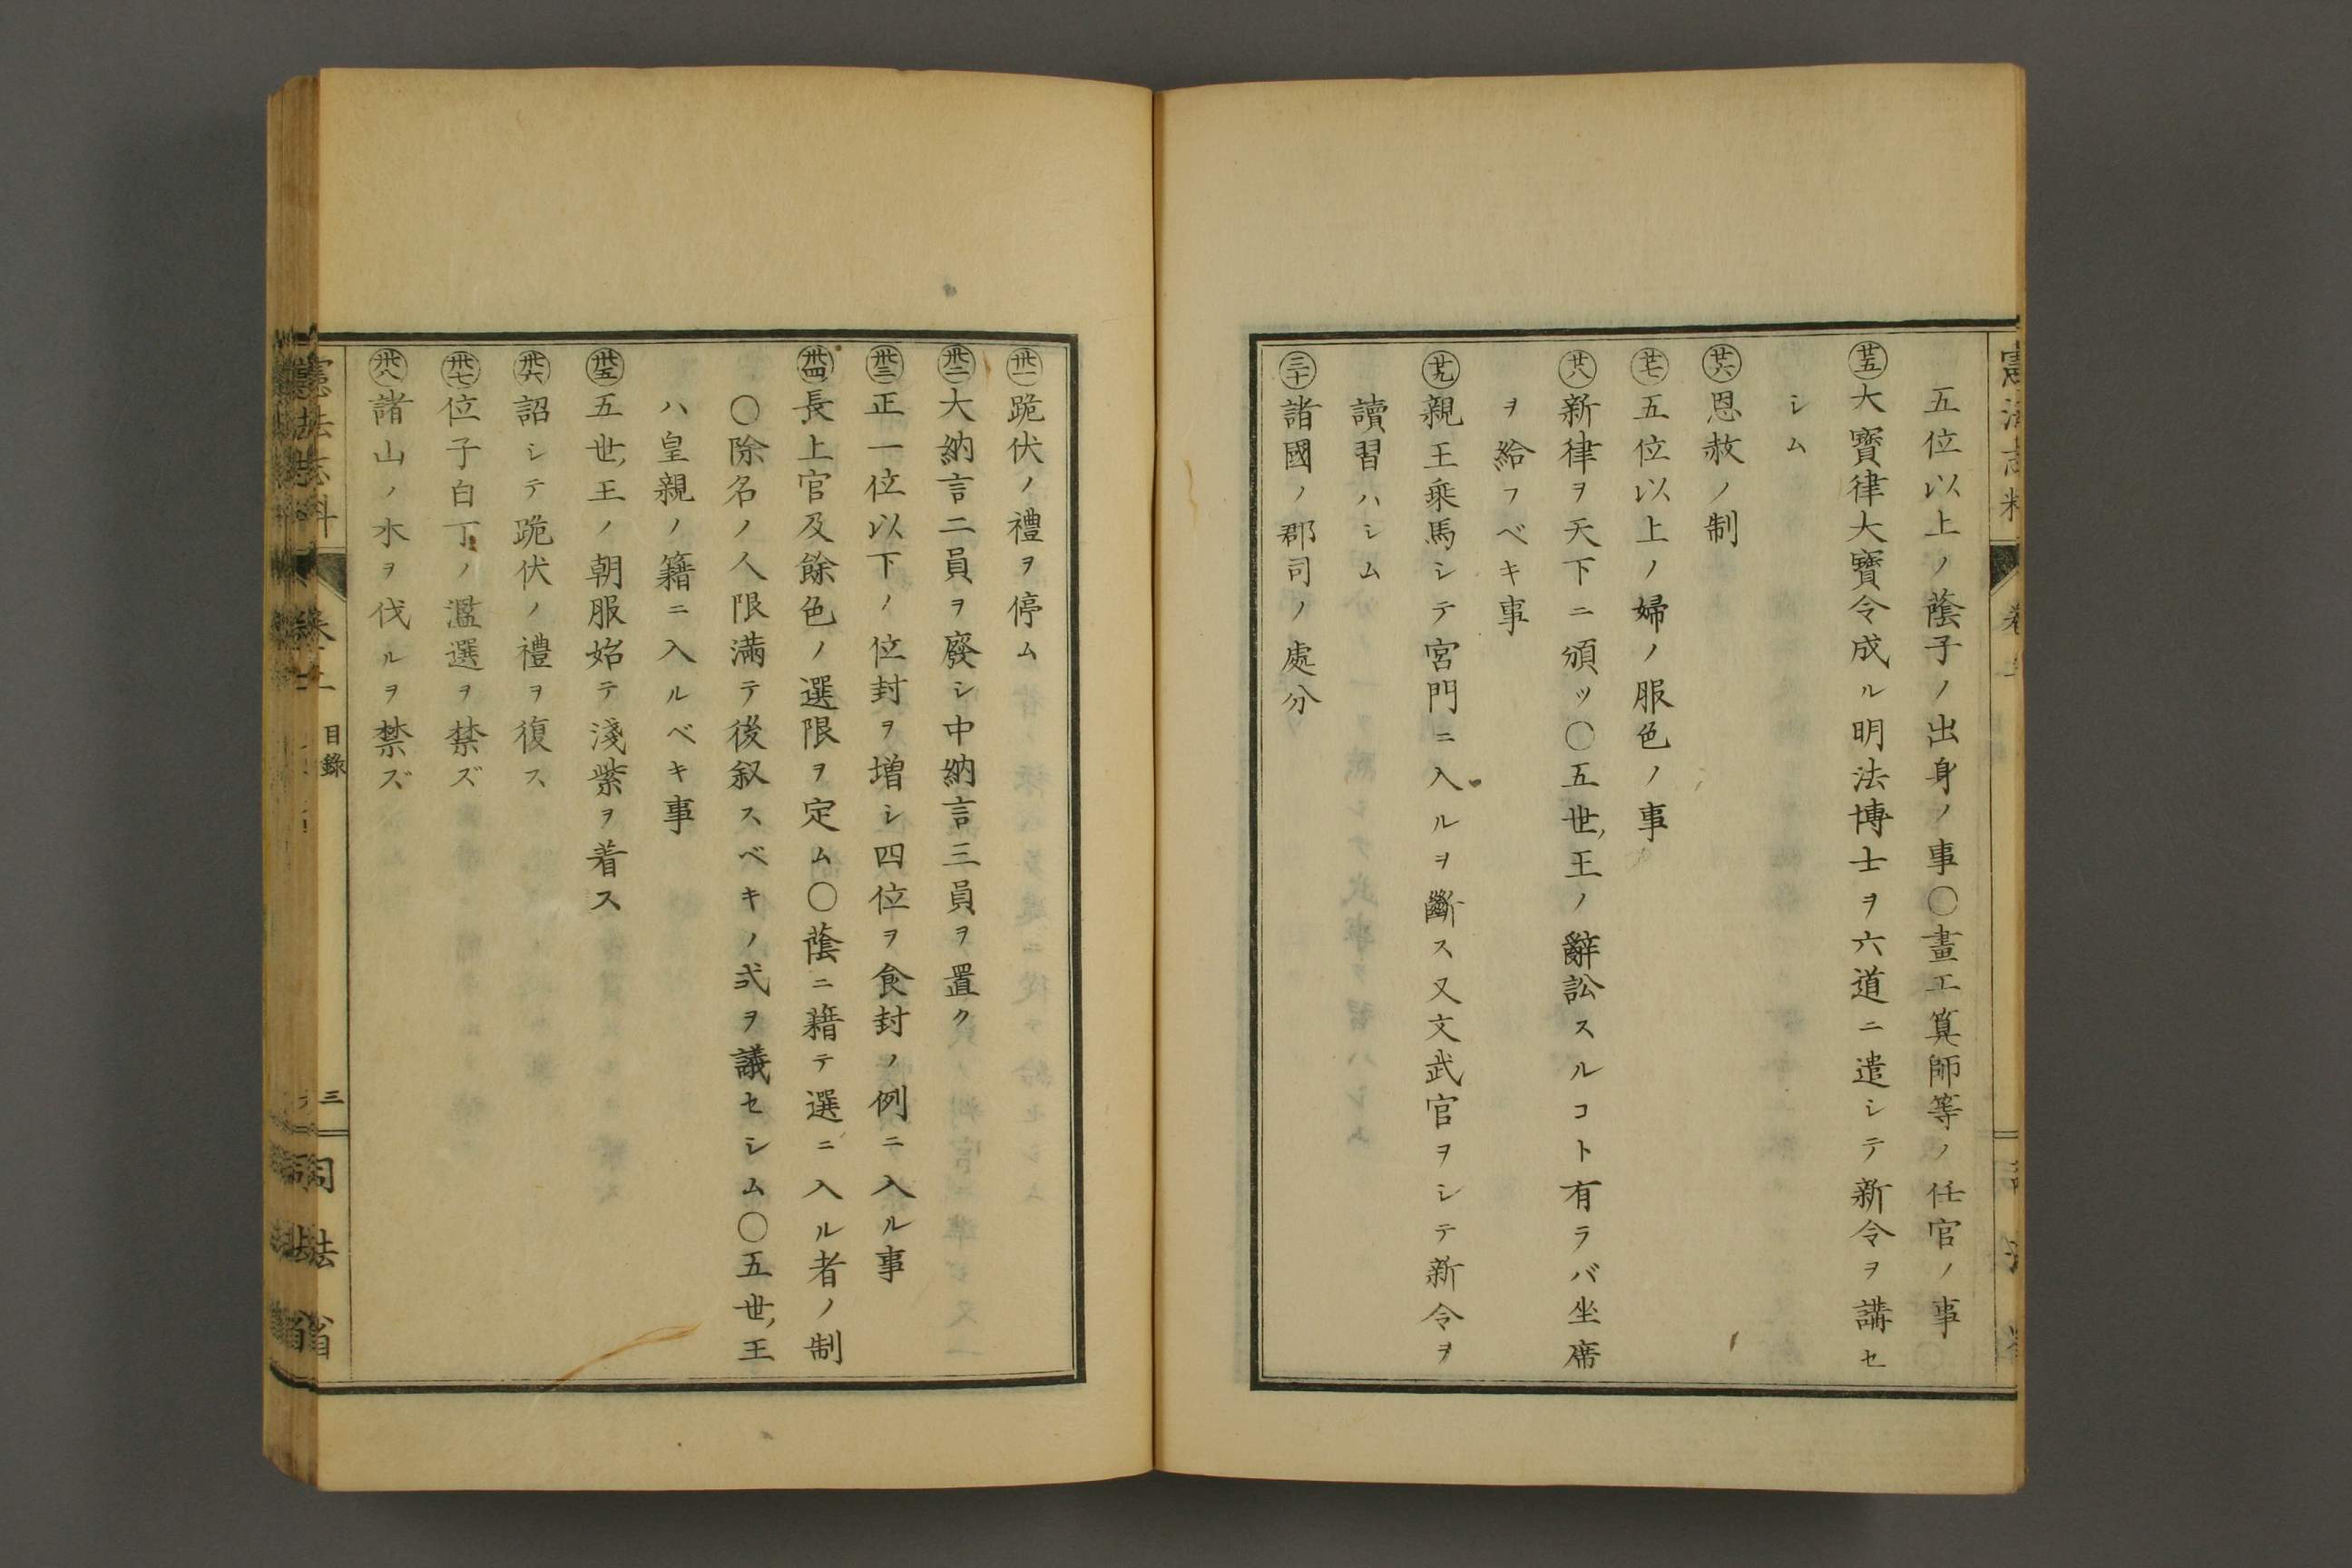 五位以上ノ蔭子ノ出身ノ事〇畫工算師等ノ任官ノ事
廿五大寶律大寶令成ル明法博士ヲ六道ニ遣シテ新令ヲ講セ
シム
廿六恩赦ノ制
廿七五位以上ノ婦ノ服色ノ事
廿八新律ヲ天下ニ頒ツ〇五世王ノ辭訟スルコト有ラバ坐席
ヲ給フベキ事
廿九親王乘馬シテ宮門ニ入ルヲ斷ス又文武官ヲシテ新令ヲ
讀習ハシム
三十諸國ノ郡司ノ處分
卅一跪伏ノ禮ヲ停ム
卅二大納言二員ヲ廢シ中納言三員ヲ置ク
卅三正一位以下ノ位封ヲ増シ四位ヲ食封ノ例ニ入ル事
卅四長上官及餘色ノ選限ヲ定ム〇蔭ニ籍テ選ニ入ル者ノ制
〇除名ノ人限満テ後叙スベキノ式ヲ議セシム〇五世王
ハ皇親ノ籍ニ入ルベキ事
卅五五世王ノ朝服始テ淺紫ヲ着ス
卅六詔シテ跪伏ノ禮ヲ復ス
卅七位子白丁ノ濫選ヲ禁ズ
卅八諸山ノ木ヲ伐ルヲ禁ズ
憲法志料
目錄
三
司法省